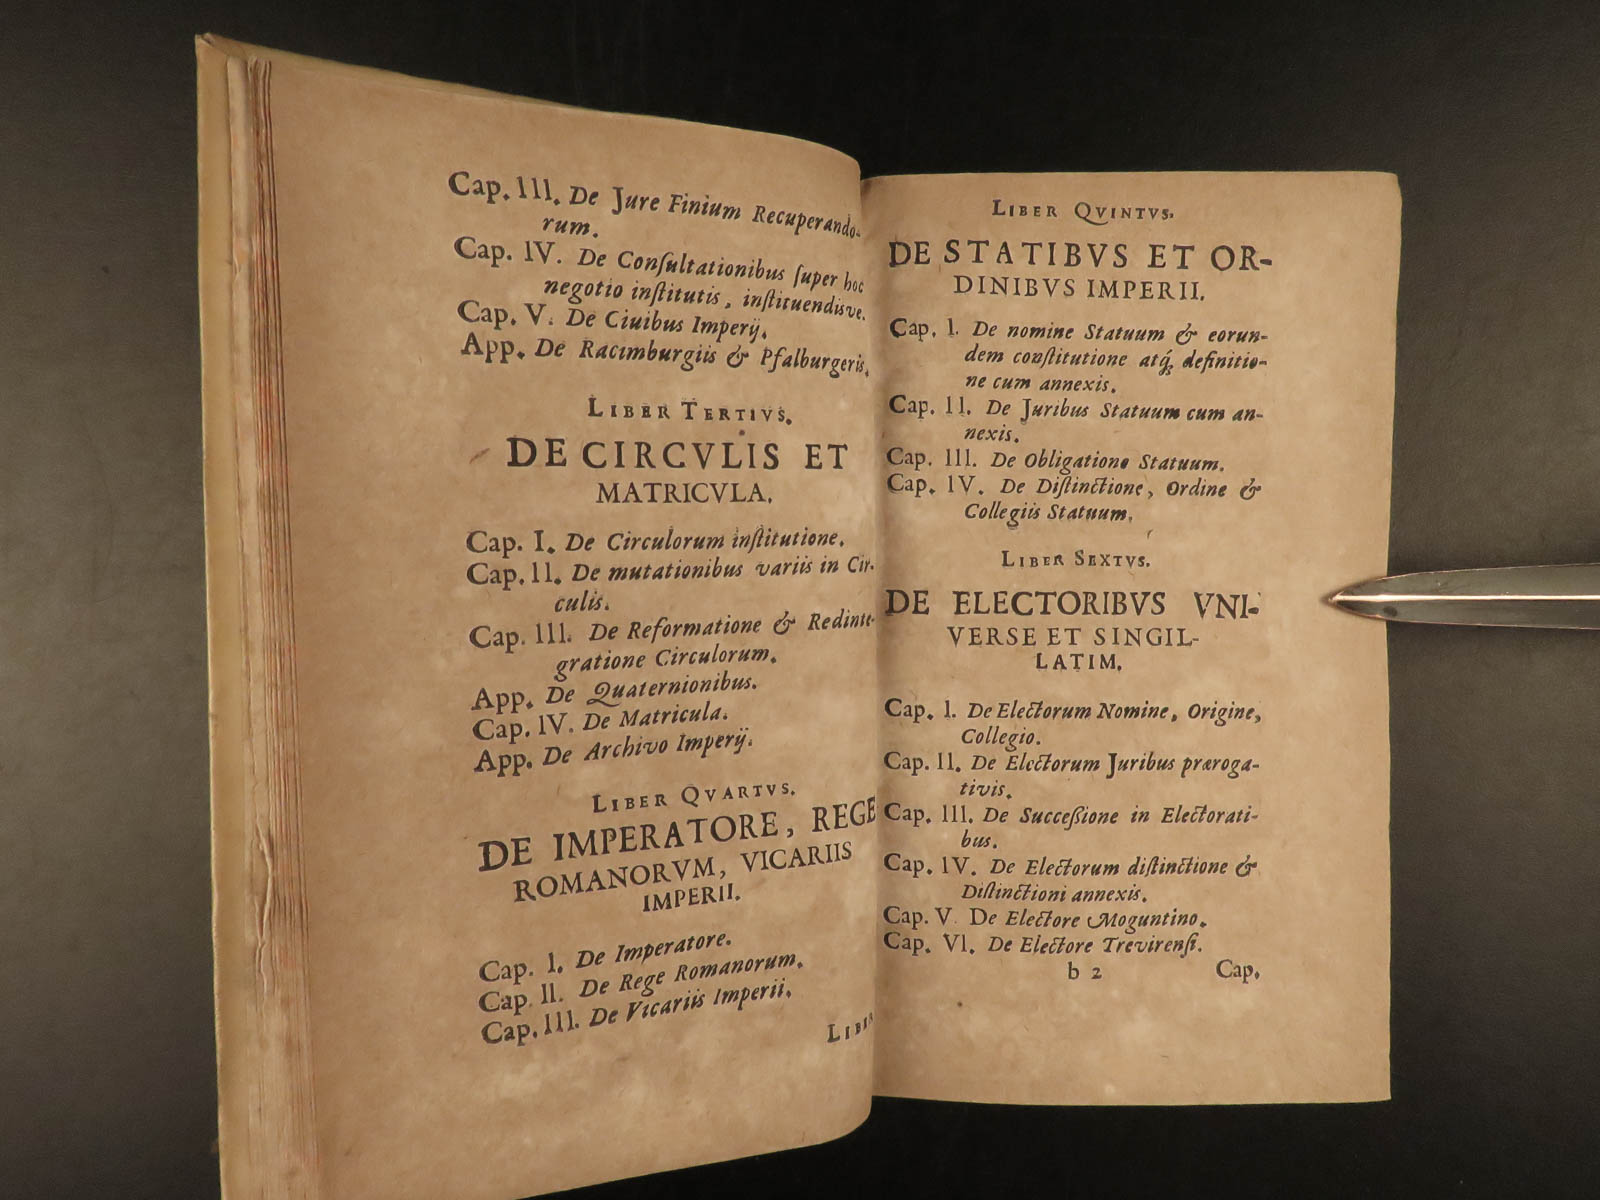 Cap. III. De Jure Finium Recuperando-
rum.
Cap. IV. De Conſultationibus ſuper hoc
negotio inſtitutis, inſtituendisve.
Cap. V. De Ciuibus Imperij.
App. De Racimburgiis & Pfalburgeris.
LIBER TERTIVS.
DE CIRCVLIS ET
MATRICVLA.
Cap. I. De Circulorum inſtitutione.
Cap. II. De mutationibus variis in Cir-
culis.
Cap. III. De Reformatione & Redinte-
gratione Circulorum.
App. De Quaternionibus.
Cap. IV. De Matricula.
App. De Archivo Imperij.
LIBER QVARTVS.
DE IMPERATORE, REGE
ROMANORVM, VICARIIS
IMPERII.
Cap. I. De Imperatore.
Cap. II. De Rege Romanorum.
Cap. III. De Vicariis Imperii.
LIBER
LIBER QVINTVS.
DE STATIBVS ET OR-
DINIBVS IMPERII.
Cap. I. De nomine Statuum & eorun-
dem conſtitutione atq́; definitio-
ne cum annexis.
Cap. II. De Juribus Statuum cum an-
nexis.
Cap. III. De Obligatione Statuum.
Cap. IV. De Diſtinctione, Ordine &
Collegiis Statuum.
LIBER SEXTVS.
DE ELECTORIBVS VNI-
VERSE ET SINGIL-
LATIM.
Cap. I. De Electorum Nomine, Origine,
Collegio.
Cap. II. De Electorum Juribus præroga-
tivis.
Cap. III. De Succeßione in Electorati-
bus.
Cap. IV. De Electorum diſtinctione &
Diſtinctioni annexis.
Cap. V De Electore Moguntino.
Cap. VI. De Electore Trevirenſi.
b 2 Cap.